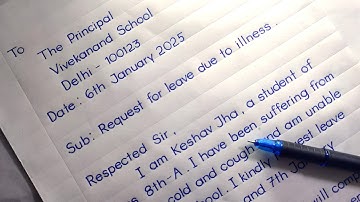 To
The Principal
Vivekanand School
Delhi - 100123
Date : 6th January 2025
Sub : Request for leave due to illness .
Respected Sir ,
I am Keshav Jha , a student of
8th - A . I have been suffering from
cold and cough and am unable
I kindly leave
and 7th January
will